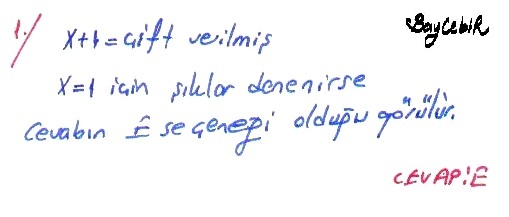 1./ x+1=çift verilmiş
BayCebir
x=1 için şıklar denenirse
cevabın E seçeneği olduğu görülür.
CEVAP:E